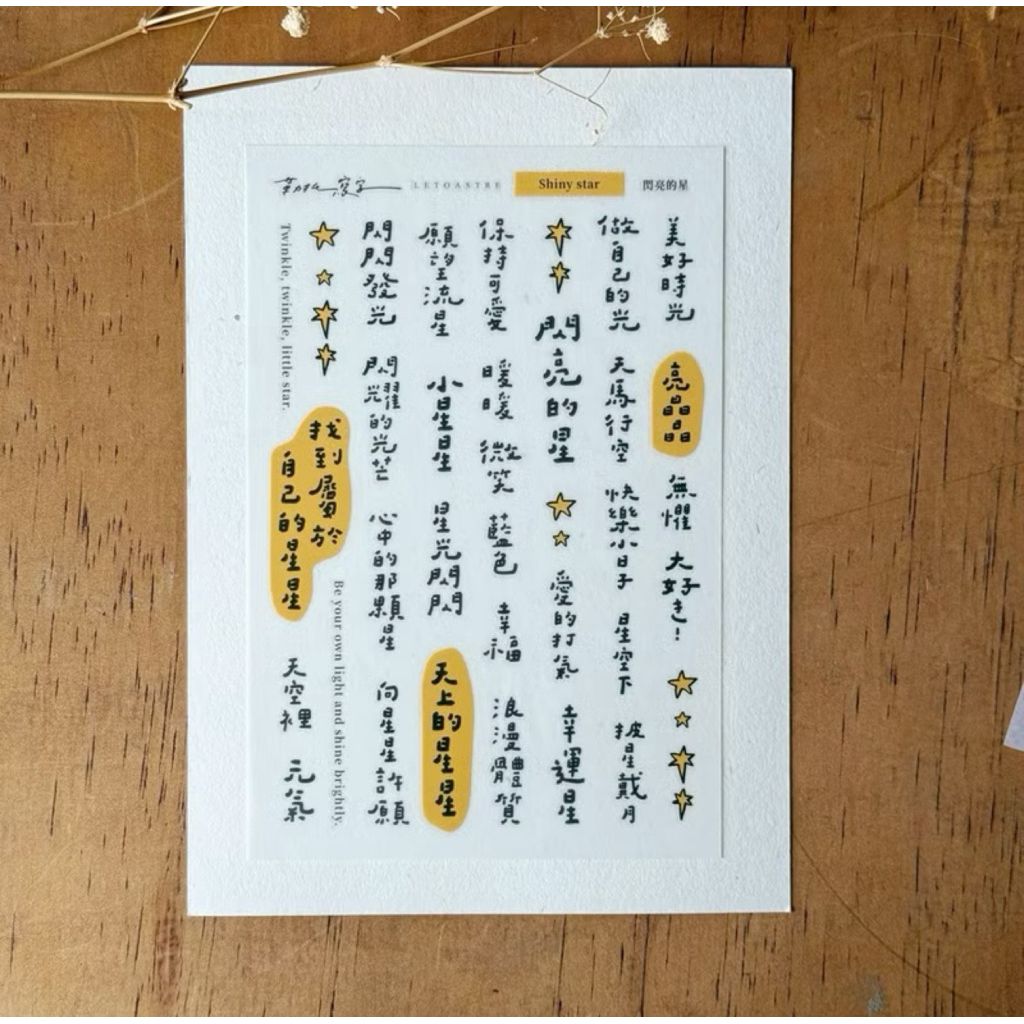 LETOASTRE
Shiny star
閃亮的星
美好時光
亮晶晶
無懼
大好き!
做自己的光
天馬行空
快樂小日子
星空下
披星戴月
閃亮的星
愛的打氣
幸運星
保持可愛
暖暖
微笑
藍色
幸福
浪漫體質
願望流星
小星星
星光閃閃
天上的星星
閃閃發光
閃耀的光芒
心中的那顆星
向星星許願
找到屬於
自己的星星
Twinkle, twinkle, little star.
Be your own light and shine brightly.
天空裡
元氣